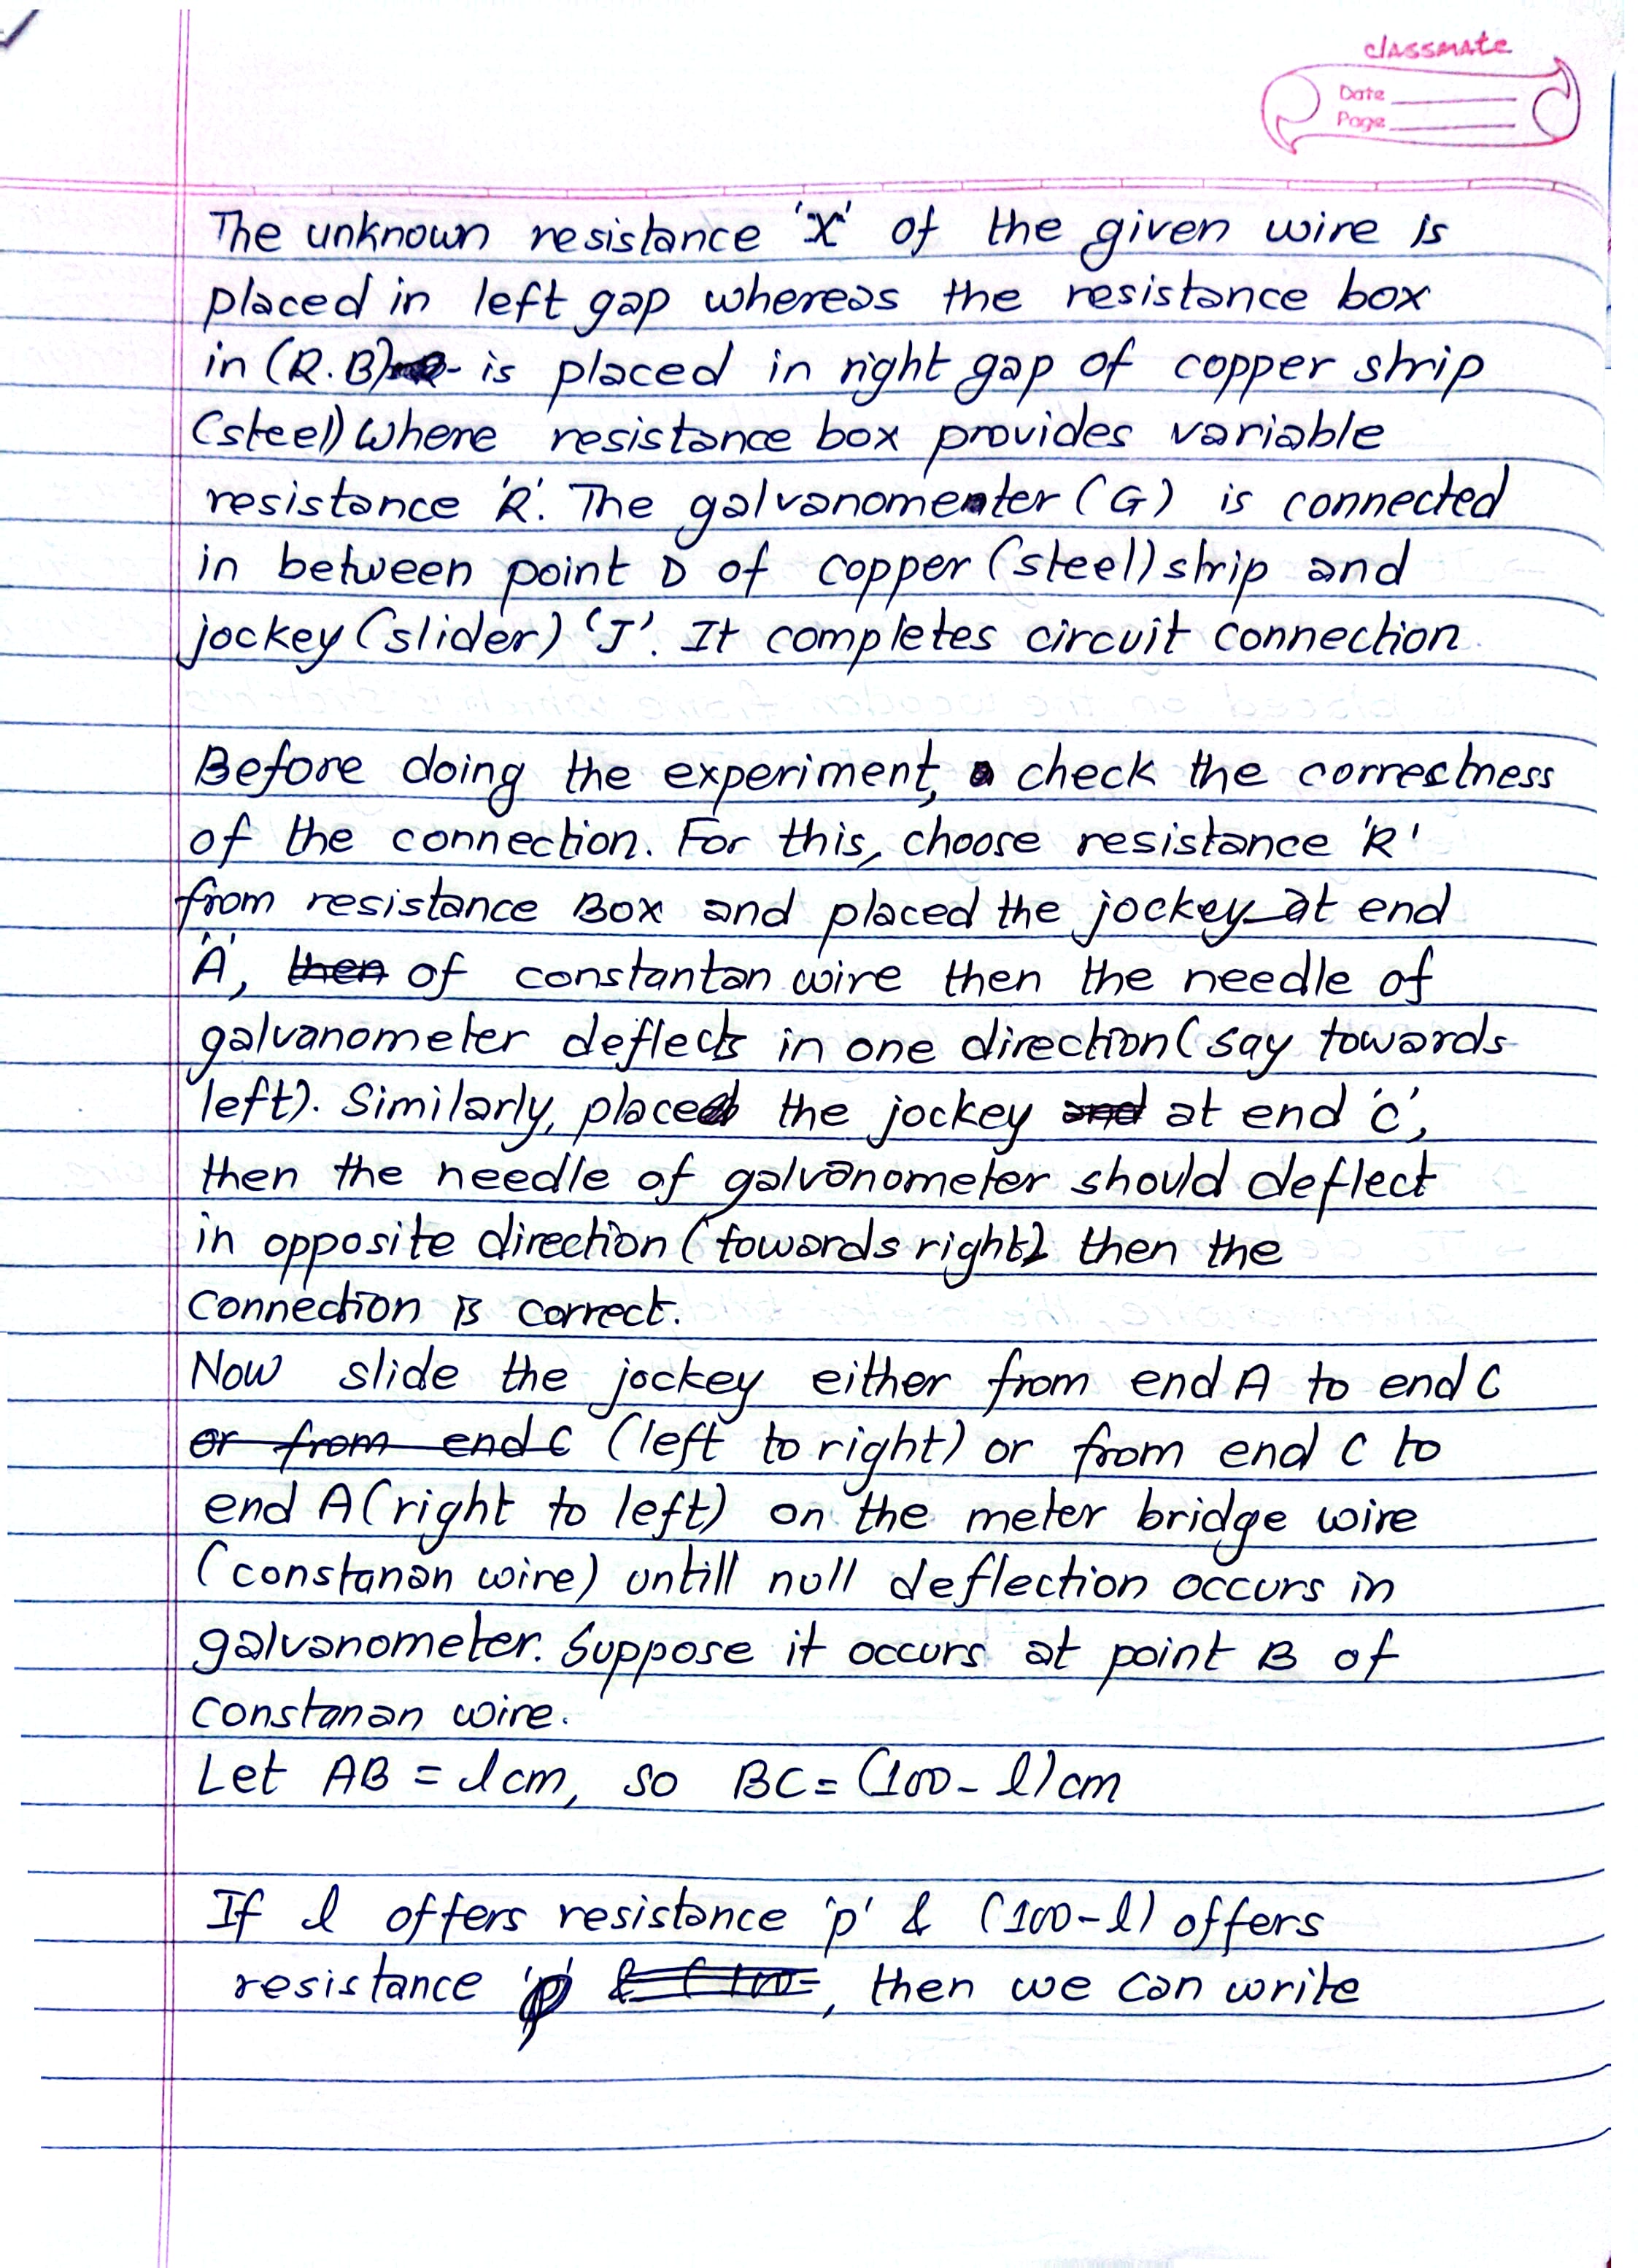 classmate
Date
Page
The unknown resistance 'X' of the given wire is
placed in left gap whereas the resistance box
in (R.B) is placed in right gap of copper strip
(steel) where resistance box provides variable
resistance 'R'. The galvanometer (G) is connected
in between point D of copper (steel) strip and
jockey (slider) 'J'. It completes circuit connection.
Before doing the experiment, check the correctness
of the connection. For this, choose resistance 'R'
from resistance Box and placed the jockey at end
'A', then of constantan wire then the needle of
galvanometer deflects in one direction (say towards
left). Similarly, place the jockey and at end 'c',
then the needle of galvanometer should deflect
in opposite direction (towards right) then the
connection is correct.
Now slide the jockey either from end A to end C
or from end C (left to right) or from end C to
end A (right to left) on the meter bridge wire
(constanan wire) untill null deflection occurs in
galvanometer. Suppose it occurs at point B of
constanan wire.
Let AB = l cm, so BC = (100 - l) cm
If l offers resistance 'p' & (100-l) offers
resistance & (100-, then we can write